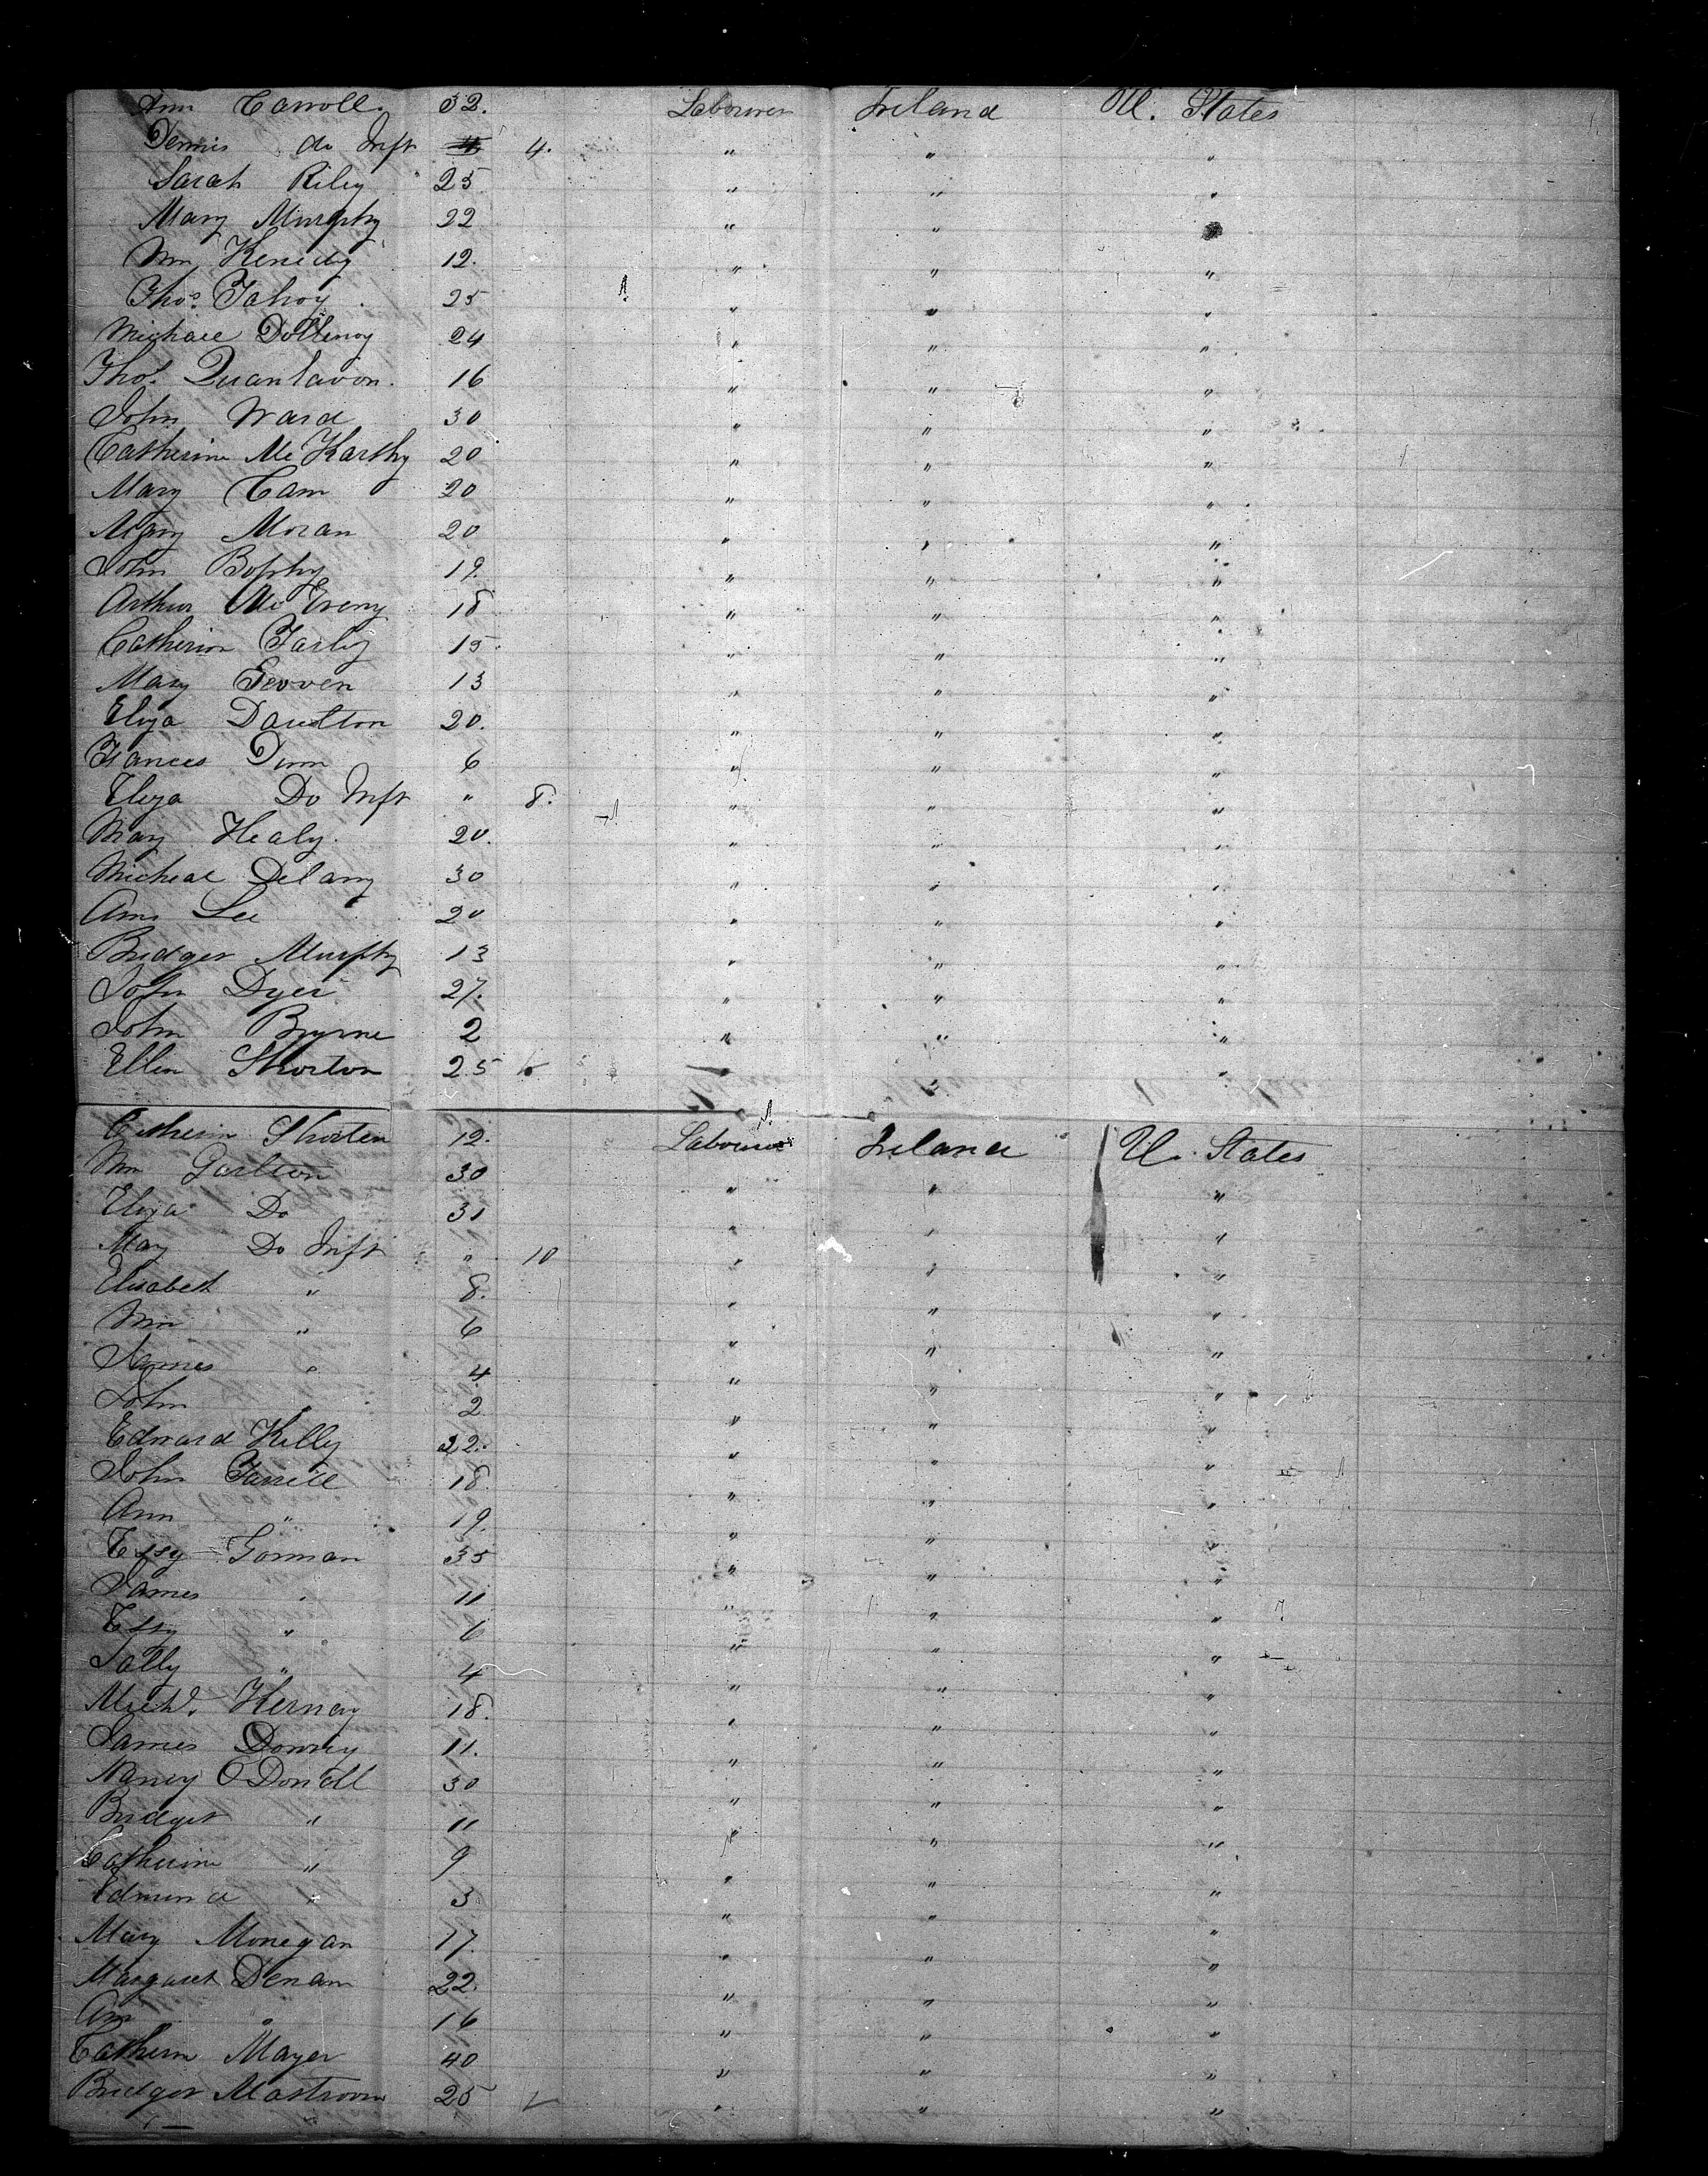 Ann Carroll. 32. Labourer Ireland U. States
Dennis do Inft 4. " " "
Sarah Riley 25 " " "
Mary Murphy 22 " "
Wm Kenedy 12. " " "
Thos Fahoy 25 " " "
Michael 24 " " "
Thos. Quanlavon. 16 " " "
John Ward 30 " " "
Catherine Mc Karthy 20 " " "
Mary Cam 20 " " "
Mary Moran 20 " " "
John Bophy 19. " " "
Arthur 18 " " "
Catherin Farley 15. " " "
Mary 13 " " "
Eliza Daulton 20. " " "
Frances Dunn 6 " " "
Eliza Do Inft " 8. " " "
Mary Healy. 20. " " "
Micheal Delany 30 " " "
Ann Lee 20 " " "
Bridget Murphy 13 " " "
John Dyer 27. " " "
John Bryrne 2 " " "
Ellen Shorton 25 " " "
Catherin Shorten 12. Labourer Ireland U. States
Wm Garlton 30 " " "
Eliza Do 31 " " "
Mary Do Inft " 10 " " "
Elisabeth " 8. " " "
Wm " 6 " " "
James " 4 " " "
John " 2 " " "
Edward Killy 22. " " "
John Farrell 18. " " "
Ann " 19. " " "
Essy Gorman 35 " " "
James " 11 " " "
Essy " 6 " " "
Sally " 4 " " "
Michl. Kernay 18. " " "
James Downy 11. " " "
Nancy O Donall 30 " " "
Bridget " 11 " " "
Catherine " 9 " " "
Edmund " 3 " " "
Mary Monegan 17. " " "
Margaret Denam 22. " " "
Ann " 16 " " "
Cathern Mayer 40 " " "
Bridget 25 " " "